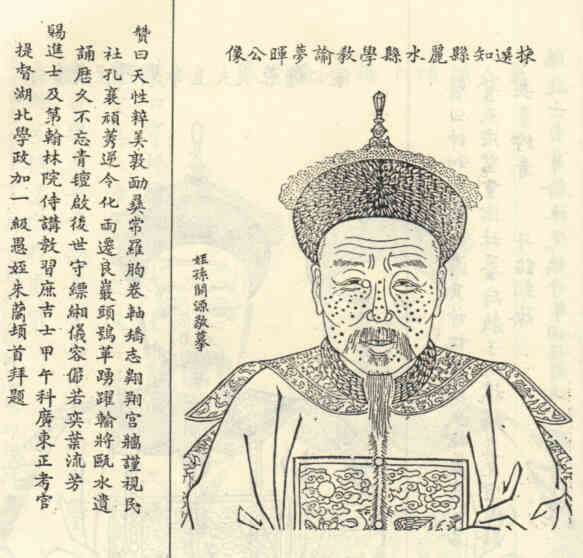 揀選知縣麗水縣學教諭夢暉公像
姪孫開源敬摹
贊曰天性粹美敦勔彝常羅胸卷軸矯志翱翔宮牆謹視民
社孔襄頑莠逆令化而遷良巖頭鴞革踴躍輸將甌水遺
誦歷久不忘青氊啟後世守縹緗儀容儼若奕葉流芳
賜進士及第翰林院侍講教習庶吉士甲午科廣東正考官
提督湖北學政加一級愚姪朱蘭頓首拜題